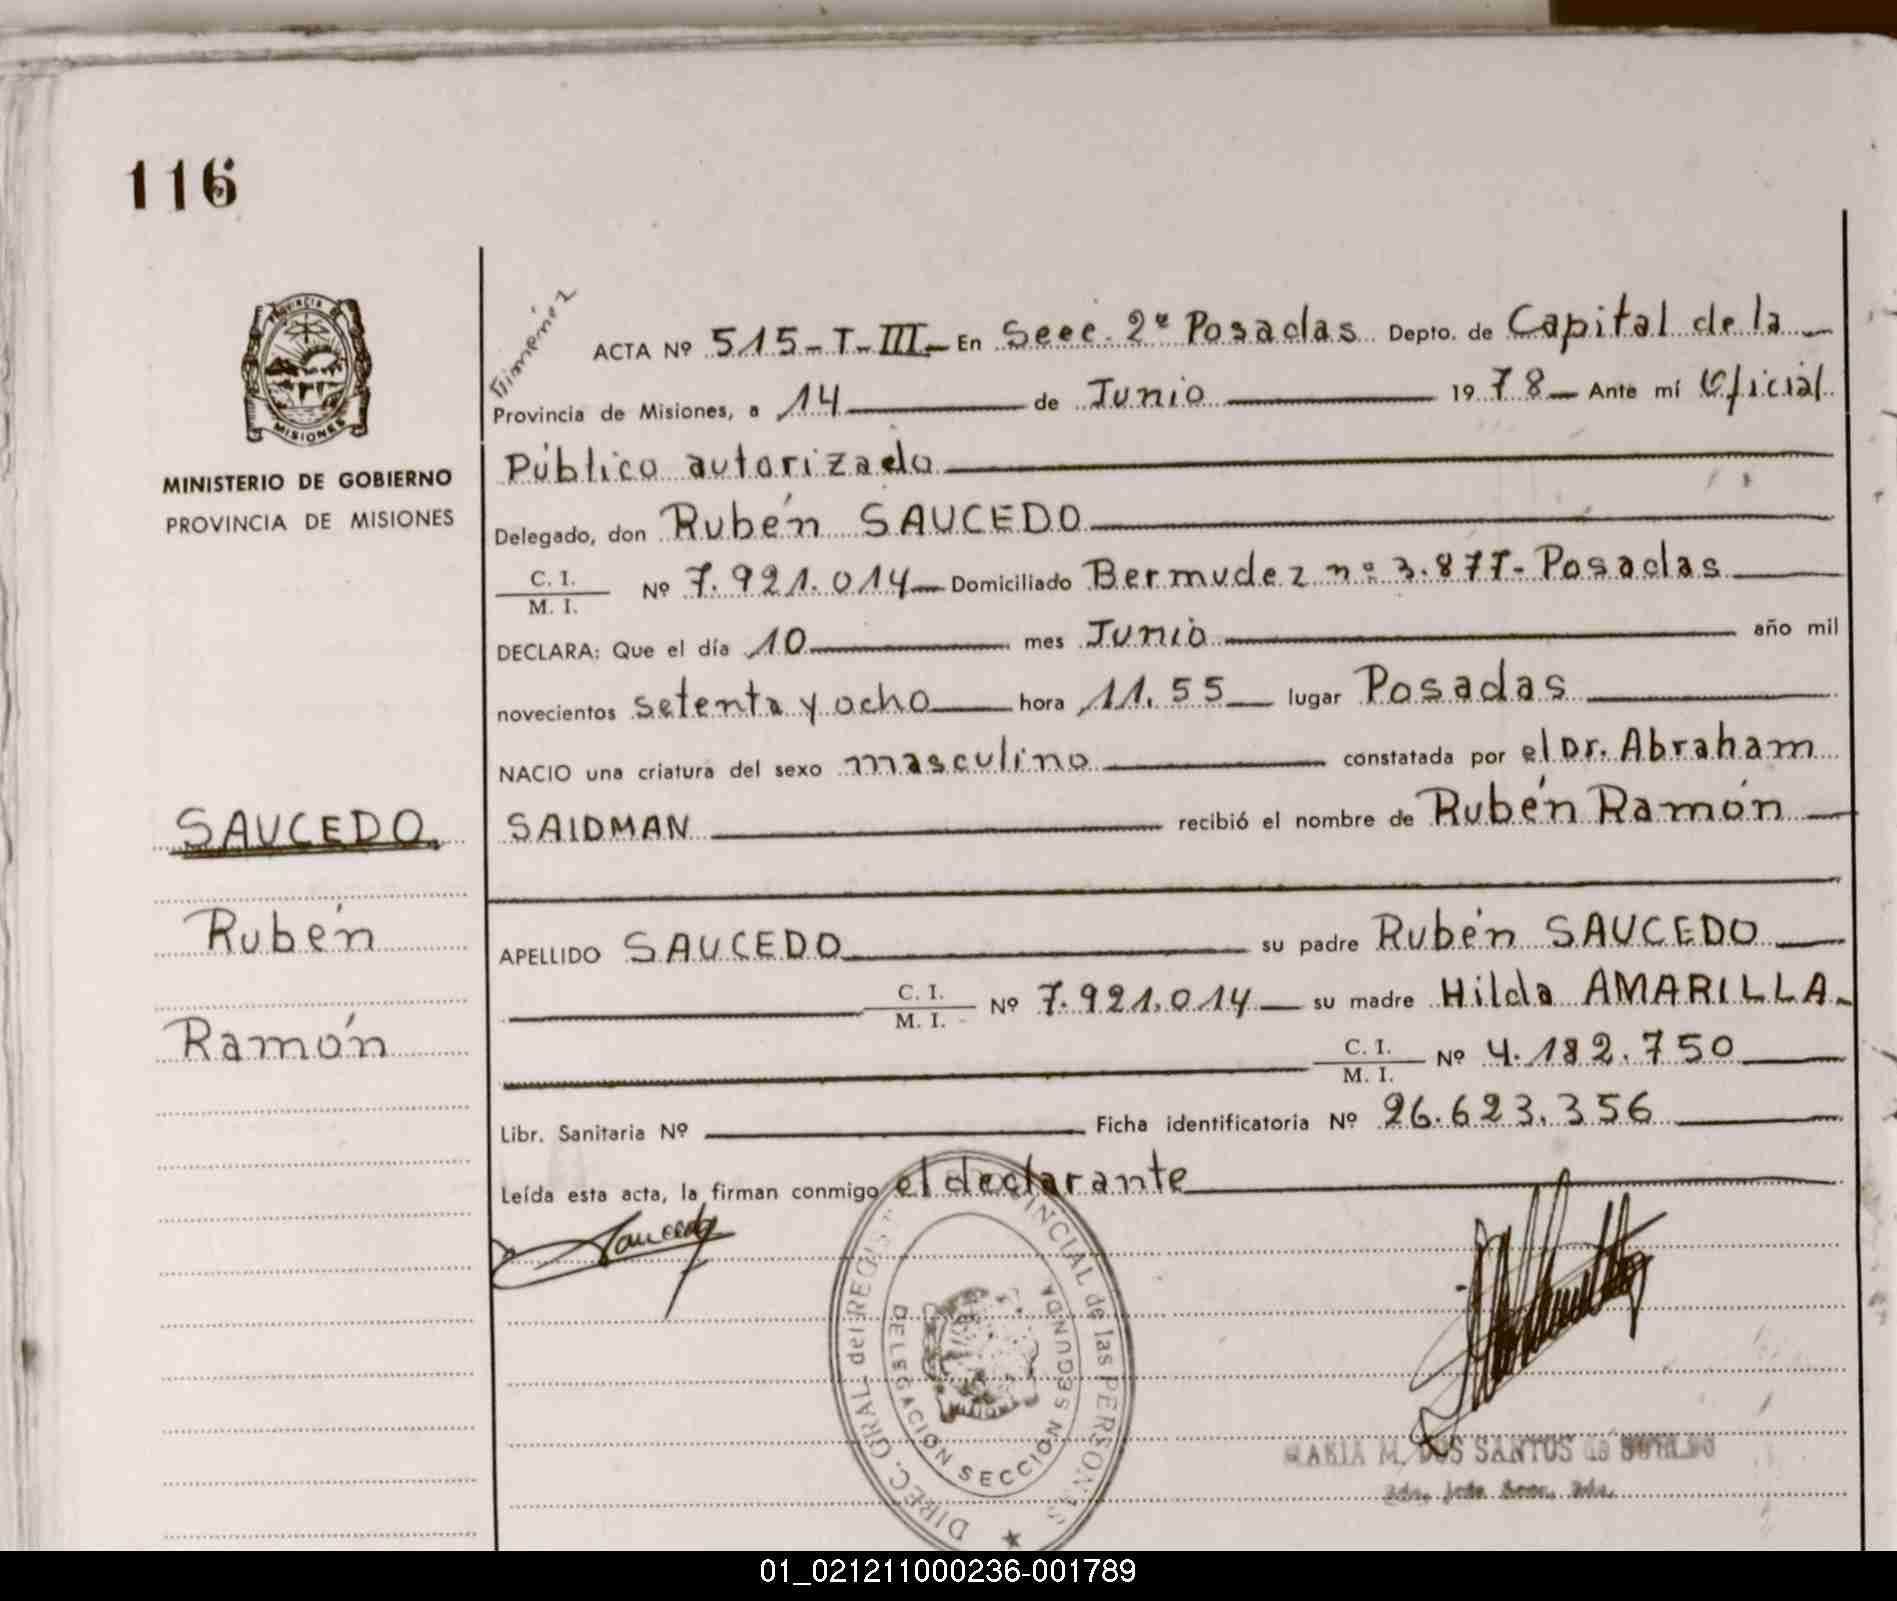 116
PROVINCIA DE
MISIONES
MINISTERIO DE GOBIERNO
PROVINCIA DE MISIONES
SAUCEDO
Rubén
Ramón
ACTA Nº 515-T-III- En Secc. 2ª Posadas Depto. de Capital de la
Provincia de Misiones, a 14 de Junio 1978 Ante mí Oficial
Público autorizado
Delegado, don Rubén SAUCEDO
C. I.
M. I. Nº 7.921.014 Domiciliado Bermudez nº 3.877- Posadas
DECLARA: Que el día 10 mes Junio año mil
novecientos setenta y ocho hora 11.55 lugar Posadas
NACIO una criatura del sexo masculino constatada por el Dr. Abraham
SAIDMAN recibió el nombre de Rubén Ramón
APELLIDO SAUCEDO su padre Rubén SAUCEDO
C. I.
M. I. Nº 7.921.014 su madre Hilda AMARILLA
C. I.
M. I. Nº 4.182.750
Libr. Sanitaria Nº Ficha identificatoria Nº 26.623.356
Leída esta acta, la firman conmigo el declarante
Saucedo
DIREC. GRAL. del PROVINCIAL de las PERSONAS
DELEGACION SECCION SEGUNDA
MARIA M. DOS SANTOS de
01_021211000236-001789